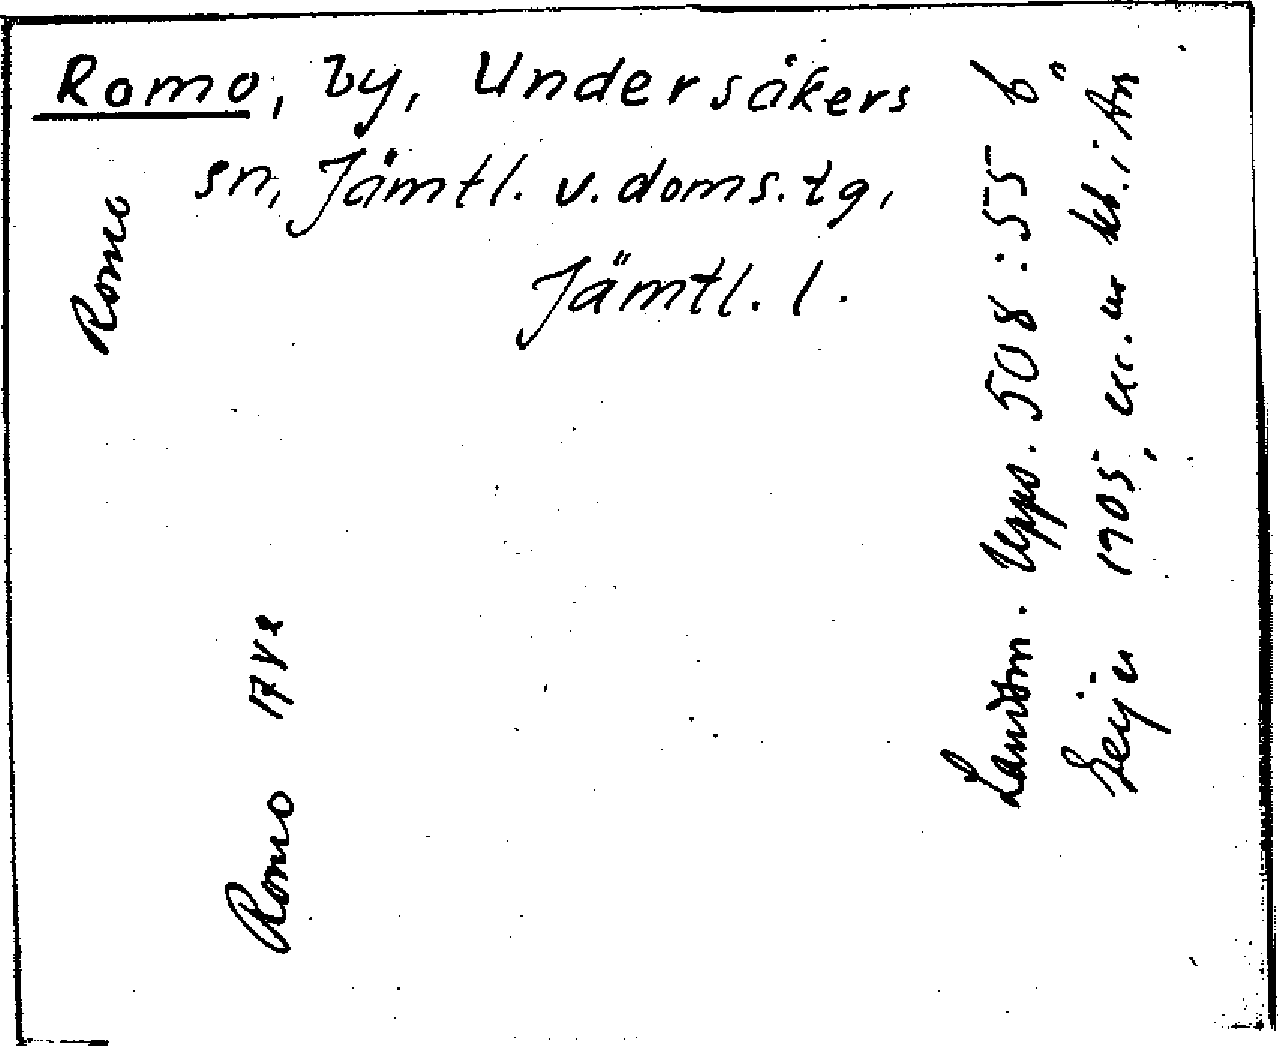 Romo, by, Undersåkers
sn, Jämtl. v. doms. tg,
Jämtl. l.
Romo
Romo 1742
Landsm. Upps. 508:55 b
1905, exc. ur kb. i